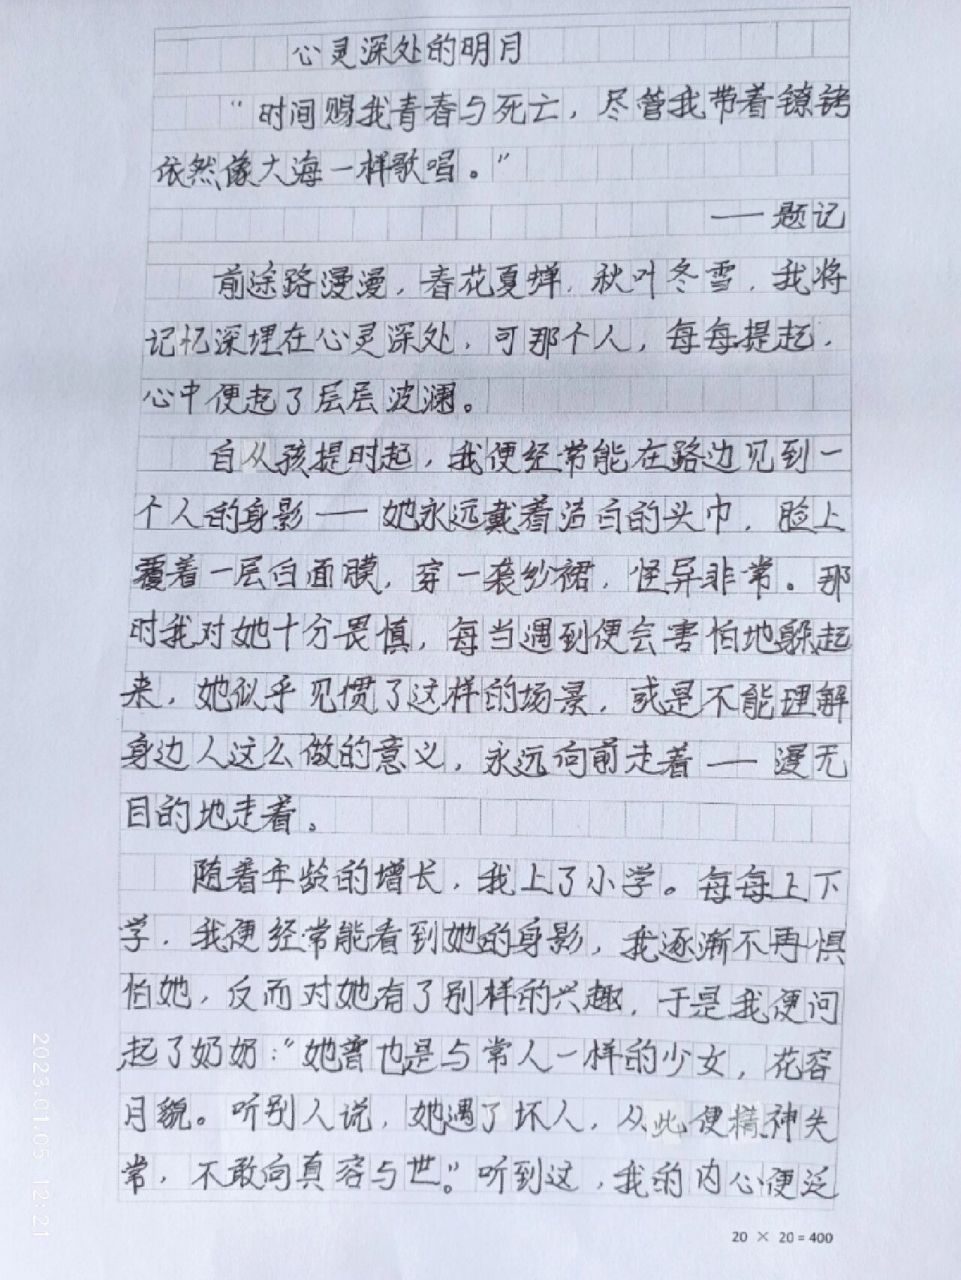 心灵深处的明月
“时间赐我青春与死亡，尽管我带着镣铐
依然像大海一样歌唱。”
——题记
前途路漫漫，春花夏蝉，秋叶冬雪，我将
记忆深埋在心灵深处，可那个人，每每提起，
心中便起了层层波澜。
自从孩提时起，我便经常能在路边见到一
个人的身影——她永远戴着洁白的头巾，脸上
覆着一层白面膜，穿一袭纱裙，怪异非常。那
时我对她十分畏慎，每当遇到便会害怕地躲起
来，她似乎见惯了这样的场景，或是不能理解
身边人这么做的意义，永远向前走着——漫无
目的地走着。
随着年龄的增长，我上了小学。每每上下
学，我便经常能看到她的身影，我逐渐不再惧
怕她，反而对她有了别样的兴趣，于是我便问
起了奶奶：“她曾也是与常人一样的少女，花容
月貌。听别人说，她遇了坏人，从此便精神失
常，不敢向真容与世。”听到这，我的内心便泛
20 × 20 = 400
2023.01.05 12:21